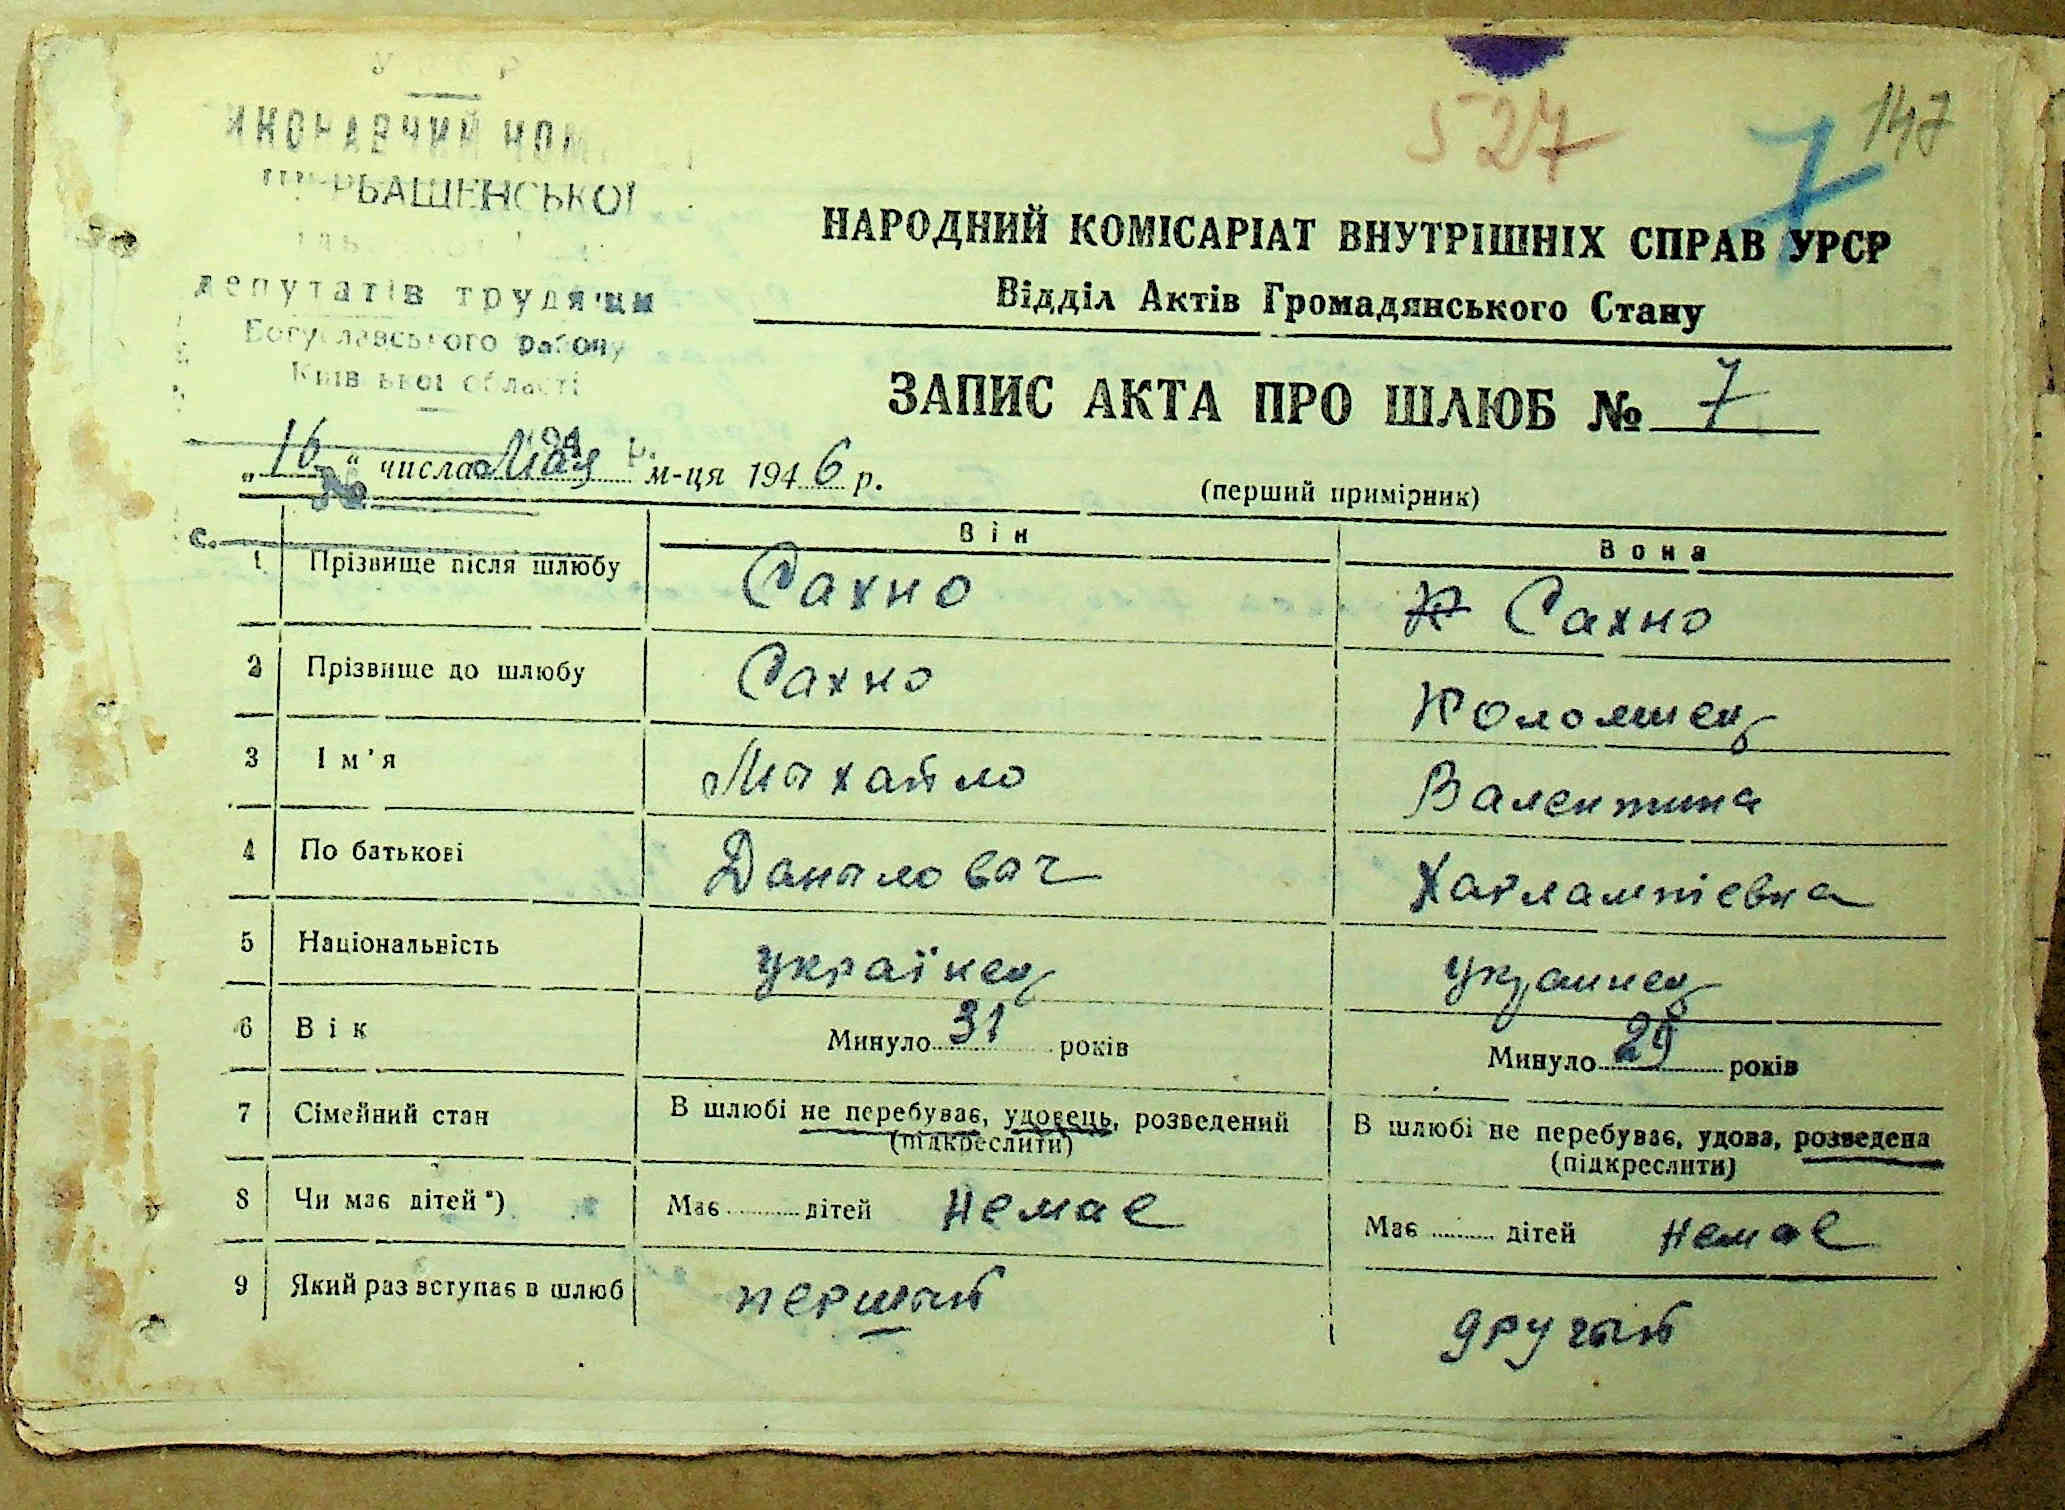 527 147
7
депутатів трудящи
Богуславського району
Київ ької області
НАРОДНИЙ КОМІСАРІАТ ВНУТРІШНІХ СПРАВ УРСР
Відділ Актів Громадянського Стану
ЗАПИС АКТА ПРО ШЛЮБ № 7
„16“ числа Мая м-ця 1946 р.
(перший примірник)
№
с.
Він Вона
1 Прізвище після шлюбу Сахно Сахно
2 Прізвище до шлюбу Сахно Коломиец
3 Ім'я Мыхайло Валентина
4 По батькові Данылович Харлампіевна
5 Національність українец украинец
6 Вік Минуло 31 років Минуло 29 років
7 Сімейний стан В шлюбі не перебуває, удовець, розведений В шлюбі не перебуває, удова, розведена
(підкреслити) (підкреслити)
8 Чи має дітей*) Має дітей немае Має дітей немае
9 Який раз вступає в шлюб першый другый